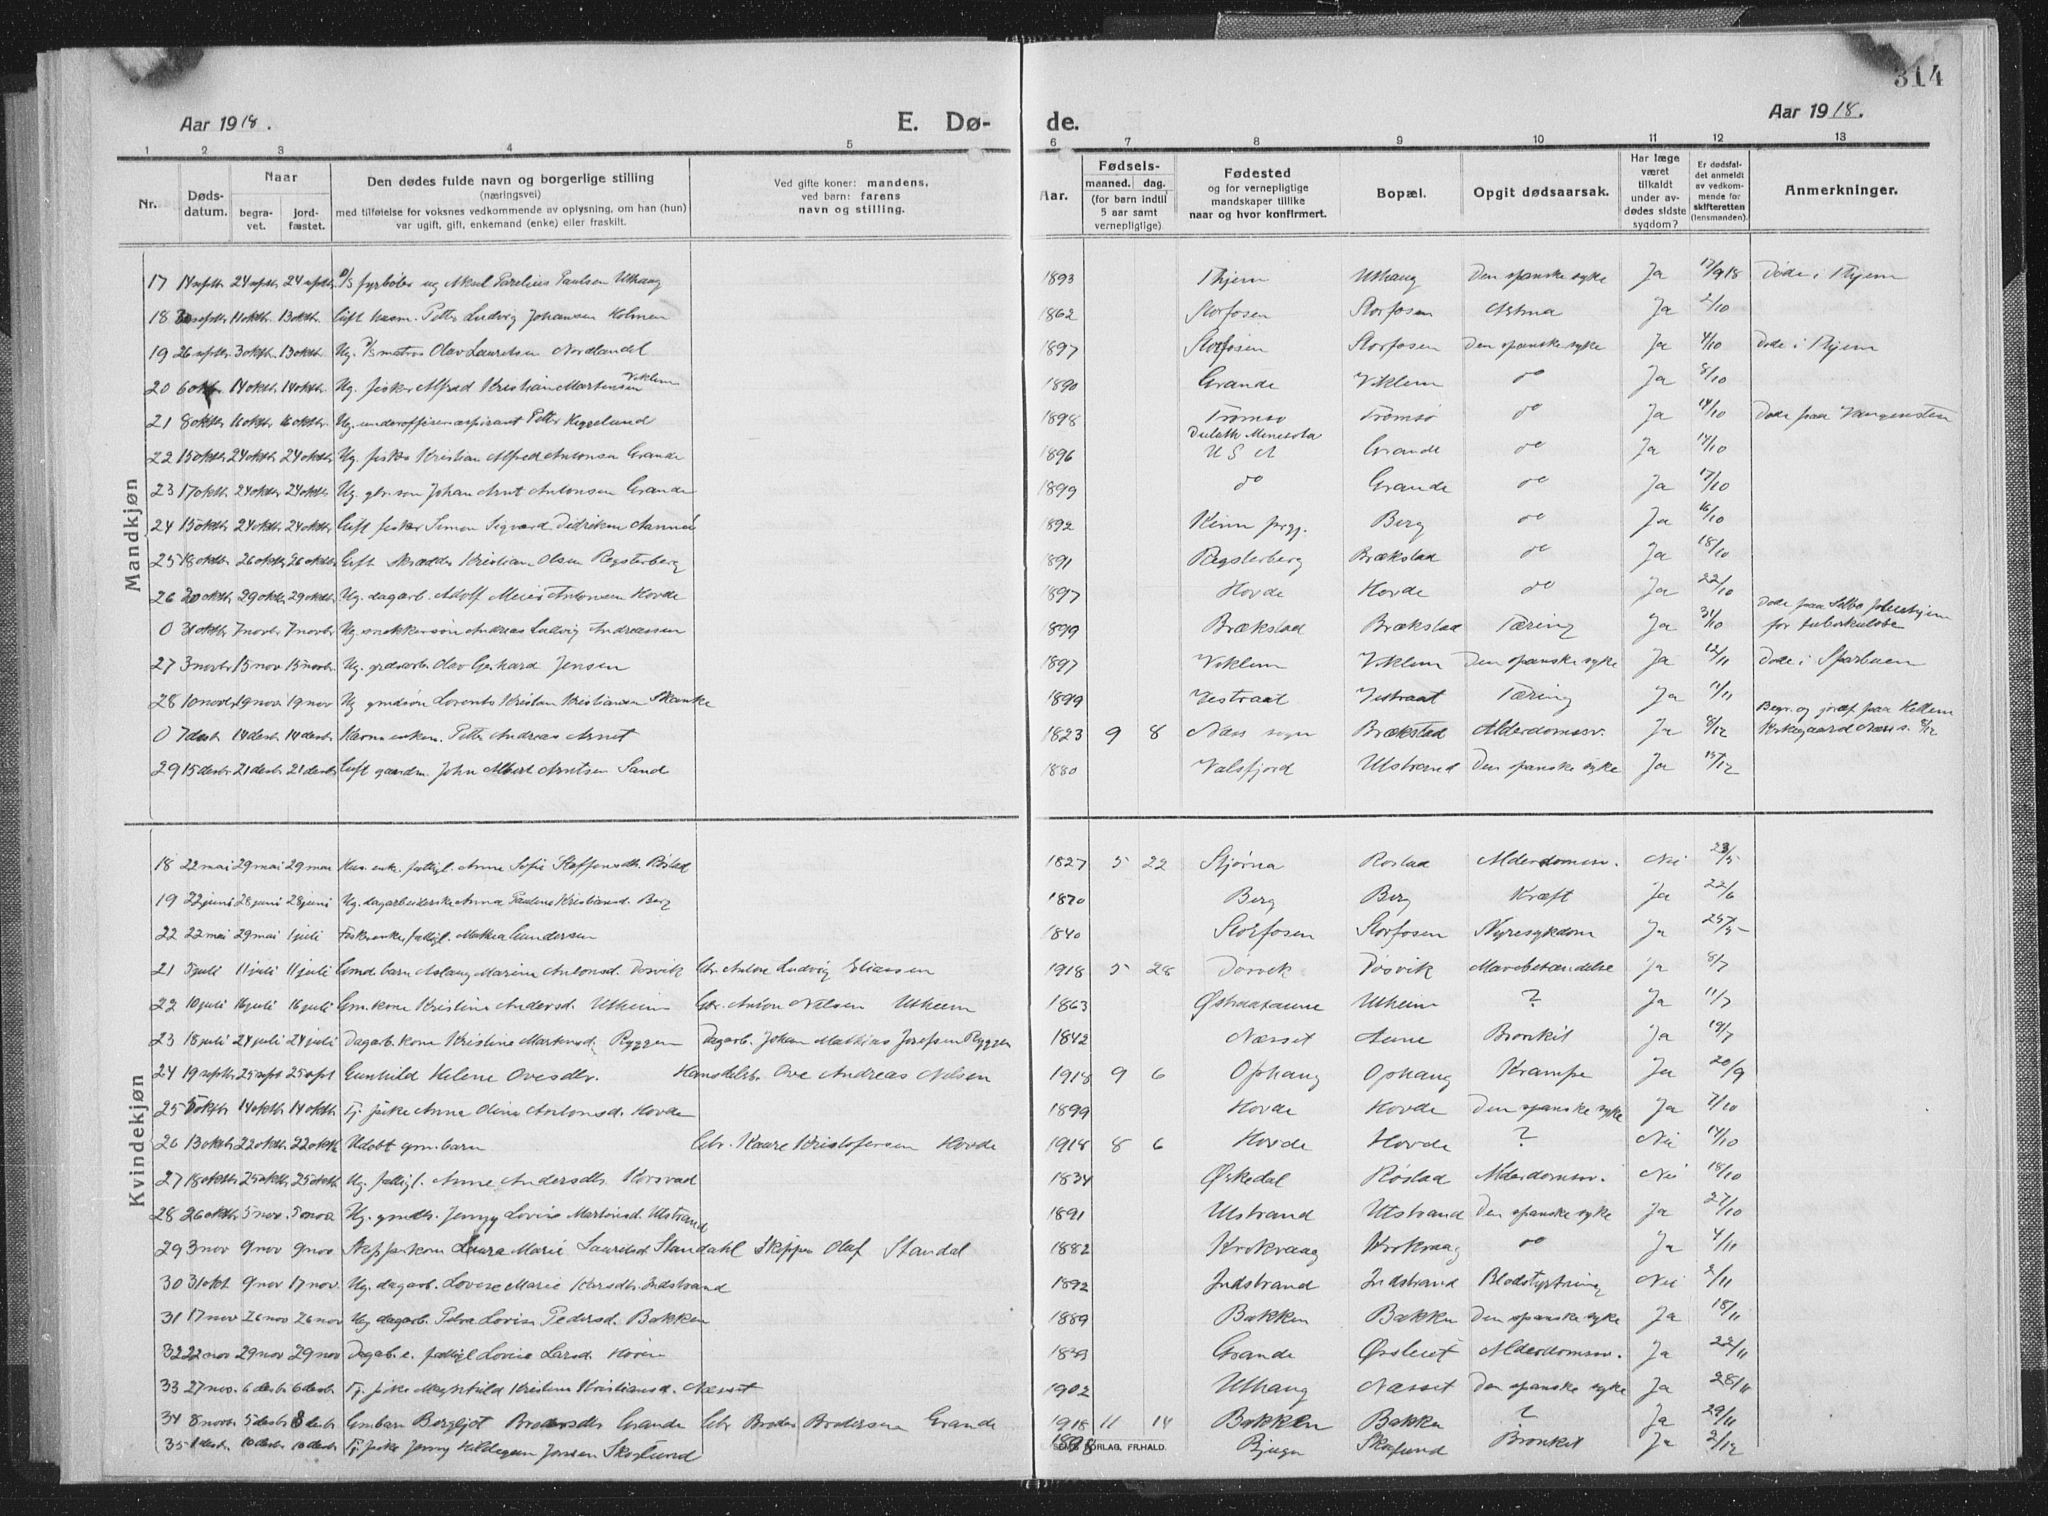 314
Aar 1918. E. Dø- de. Aar 1918.
1 2 3 4 5 6 7 8 9 10 11 12 13
Nr. Døds-datum. Naar begra-vet. jord-fæstet. Den dødes fulde navn og borgerlige stilling (næringsvei) med tilføielse for voksnes vedkommende av oplysning, om han (hun) var ugift, gift, enkemand (enke) eller fraskilt. Ved gifte koner: mandens, ved barn: farens navn og stilling. Aar. Fødsels- maaned. dag. (for barn indtil 5 aar samt vernepligtige) Fødested og for vernepligtige mandskaper tillike naar og hvor konfirmert. Bopæl. Opgit dødsaarsak. Har læge været tilkaldt under av-dødes sidste sygdom? Er dødsfal-det anmeldt av vedkom-mende for skifteretten (lensmanden). Anmerkninger.
Mandkjøn
17 14 septbr 24 septbr 24 septbr D/S fyrbøter ug Aksel Parelius Paulsen Uthaug 1893 Thjem Uthaug Den spanske syke Ja 17/9 18 Døde i Thjem
18 30 septbr 11 oktbr. 13 oktbr. Gift Petter Ludvig Johansen Holmen 1862 Storfosen Storfosen Astma Ja 2/10
19 26 septbr 3 oktbr. 13 oktbr. Ug. D/S matros Olav Lauritsen Nordlandet 1897 Storfosen Storfosen Den spanske syke Ja 4/10 Døde i Thjem
20 6 oktbr 14 oktbr. 14 oktbr. Ug. fisker Alfred Kristian Martensen Viklem 1890 Grande Viklem do Ja 8/10
21 8 oktbr 16 oktbr 16 oktbr. Ug. underofficersaspirant Petter 1898 Tromsø Tromsø do Ja 14/10 Døde paa
22 15 oktbr 24 oktbr 24 oktbr. Ug. fisker Kristian Alfred Antonsen Grande 1896 Duluth Minesota U S A Grande do Ja 17/10
23 17 oktbr. 24 oktbr 24 oktbr Ug. gbr. søn Johan Arnt Antonsen Grande 1899 do Grande do Ja 17/10
24 15 oktbr 24 oktbr 24 oktbr Gift fisker Simon Sigvard Didriksen 1892 Kinn prgj. Berg do Ja 16/10
25 18 oktbr 26 oktbr. 26 oktbr Gift skrædder Kristian Olsen Rygsterberg 1891 Rygsterberg Brækstad do Ja 18/10
26 20 oktbr 29 oktbr 29 oktbr. Ug. dagarb. Adolf Meier Antonsen Hovde 1897 Hovde Hovde do Ja 22/10
0 31 oktbr 7 novbr 7 novbr Ug. snekkersøn Andreas Ludvig Andreassen 1899 Brækstad Brækstad Tæring Ja 31/10 Døde paa for tuberkuløse
27 3 novbr 15 nov 15 novbr Ug. grdsarb. Olav Gerhard Jensen 1897 Viklem Viklem Den spanske syke Ja 12/11 Døde i Sparbuen
28 10 novbr 19 nov 19 nov Ug. gmdsøn Lorents Kristian Kristiansen Skanke 1899 Vestraat Vestraat Tæring Ja 11/11
0 7 desbr 14 desbr. 14 desbr. Petter Andreas Arnet 1823 9 8 Næs sogn Brækstad Alderdomssv. Ja 8/12 Begr. og jordf. paa Kirkegaard Næs s.
29 15 desbr 21 desbr 21 desbr Gift gaardm. John Albert Arntsen Sand 1880 Valsfjord Ulstrand Den spanske syke Ja 17/12
Kvindekjøn
18 22 mai 29 mai 29 mai enk. fattigl. Anne Sofie Steffensdtr. Røstad 1827 5 22 Stjørna Røstad Alderdomssv. Nei 23/5
19 22 juni 28 juni 28 juni Ug. dagarbeiderske Anna Pauline Kristiansd. Berg 1870 Berg Berg Kræft Ja 22/6
22 22 mai 29 mai 1 juli fattigl. Gundersen 1840 Storfosen Storfosen Nyresykdom Ja 25/5
21 5 juli 11 juli 11 juli barn Aslaug Marine Antonsd. Døsvik Gbr. Anton Ludvig Eliassen 1918 5 28 Døsvik Døsvik Mavebetændelse Ja 8/7
22 10 juli 16 juli 16 juli Gm. kone Kristine Andersd. Utheim Gbr. Anton Nilsen Utheim 1863 Østraataune Utheim ? Ja 11/7
23 18 juli 24 juli 24 juli Dagarb. kone Kristine Martinsd. Ryggen Dagarb. Johan Mathias Josefsen Ryggen 1842 Næsset Aune Bronkit Ja 19/7
24 19 septbr 25 sept 25 sept Gunhild Helene Ovesdtr. Handelsb. Ove Andreas Nilsen 1918 9 6 Ophaug Ophaug Krampe Ja 20/9
25 5 oktbr 14 oktbr 14 oktbr. Tj. pike Anna Oline Antonsd. Hovde 1899 Hovde Hovde Den spanske syke Ja 7/10
26 13 oktbr 22 oktbr. 22 oktbr Udøbt gm. barn Gbr. Kaare Kristofersen Hovde 1918 8 6 Hovde Hovde ? Nei 14/10
27 18 oktbr 25 oktbr. 25 oktbr Ug. fattigl. Anne Andersdtr. Korsvad 1834 Ørkedal Røstad Alderdomssv. Nei 18/10
28 26 oktbr 5 nov. 5 nov Ug. gmdtr. Jenny Lovise Martinsd. Ulstrand 1891 Ulstrand Ulstrand Den spanske syke Ja 27/10
29 3 nov 9 nov 9 nov Laura Marie Lauritsd Standahl Skipper Olaf Standal 1882 Krokvaag Krokvaag do Ja 4/11
30 31 okt. 9 nov 17 nov. Ug. dagarb. Lovise Marie Indstrand 1892 Indstrand Indstrand Blodstyrtning Nei 2/11
31 17 nov 26 nov 26 nov Ug dagarb. Petra Lovise Pedersd. Bakken 1889 Bakken Bakken Den spanske syke Ja 18/11
32 22 nov 29 nov 29 nov Dagarb. e. fattigl Lovise Larsd. 1833 Grande Alderdomssv. Ja 22/11
33 27 nov. 6 desbr 6 desbr Tj. pike Magnhild Kristine Kristiansd. Næsset 1902 Uthaug Næsset Den spanske syke Ja 28/11
34 8 novbr 5 desbr 8 desbr Gmbarn Bergljot Brodersdtr Grande Gbr Broder Brodersen Grande 1918 11 14 Bakken Bakken ? Ja 29/11
35 1 desbr. 10 desbr 10 desbr Tj. pike Jenny Hildegun Jensen Skoglund 1898 Bjugn Skoglund Bronkit Ja 2/12
SEMS FORLAG, FR.HALD.